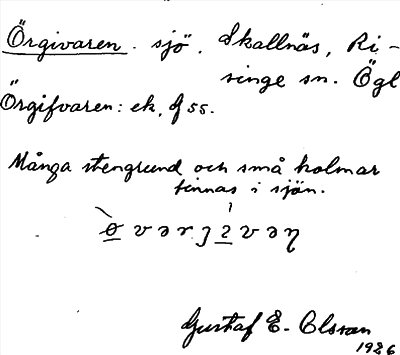 Örgivaren. sjö. Skallnäs, Ri-
singe sn. Ögl
Örgifvaren: ek,
Många stengrund och små holmar
finnas i sjön.
Gustaf E. Olsson
1926